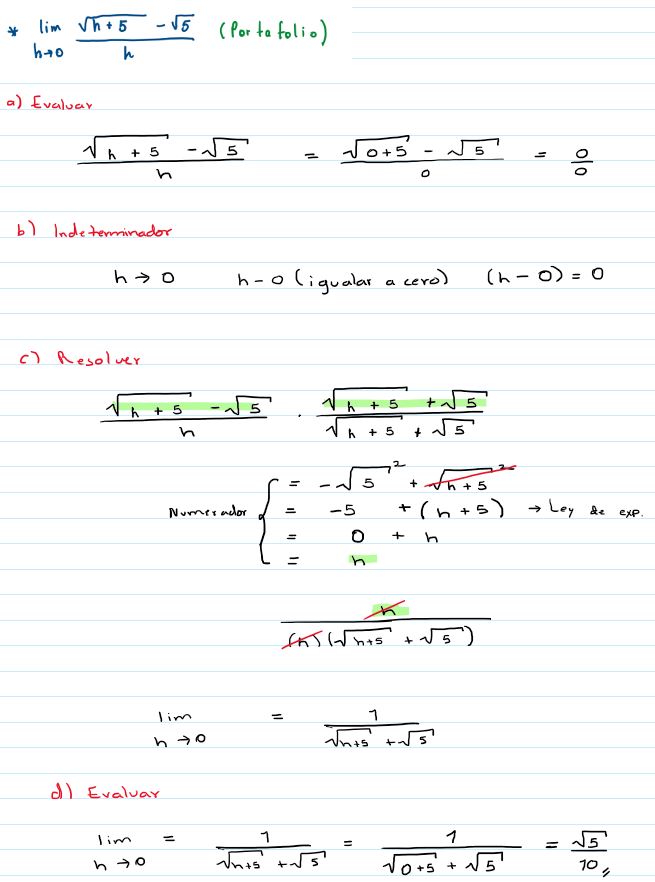 * lim h→0 (√(h+5) - √5)/h (Portafolio)
a) Evaluar
(√(h+5) - √5)/h = (√(0+5) - √5)/0 = 0/0
b) Indeterminador
h → 0 h-0 (igualar a cero) (h-0) = 0
c) Resolver
(√(h+5) - √5)/h · (√(h+5) + √5)/(√(h+5) + √5)
= -√5² + √(h+5)²
Numerador { = -5 + (h+5) → Ley de exp.
= 0 + h
= h
h/((h)(√(h+5) + √5))
lim h→0 = 1/(√(h+5) + √5)
d) Evaluar
lim h→0 = 1/(√(h+5) + √5) = 1/(√(0+5) + √5) = √5/10